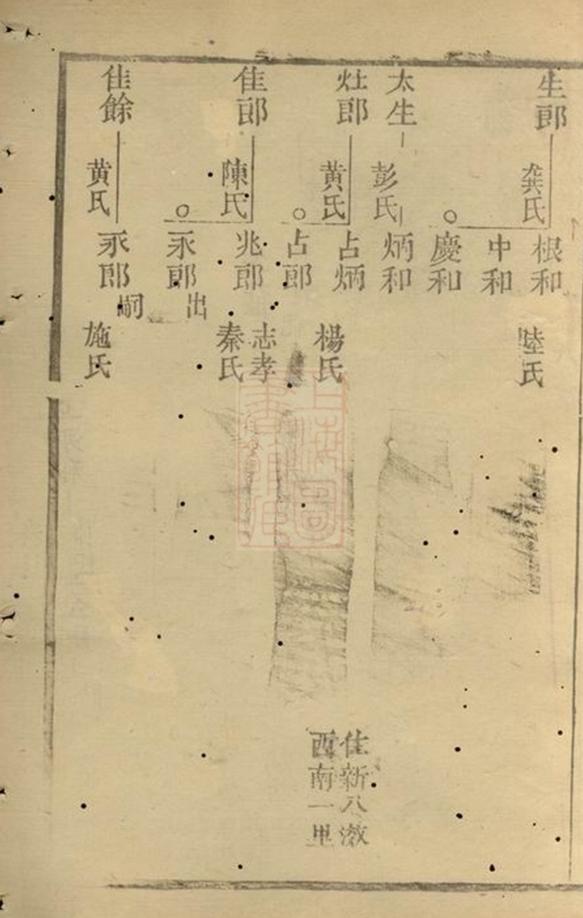 生郎
龔氏
根和
陸氏
中和
慶和
太生
彭氏
炳和
灶郎
黄氏
占炳
楊氏
住新八滧
西南一里
占郎
隹郎
陳氏
兆郎
志孝
秦氏
永郎
出
隹餘
黄氏
永郎
嗣
施氏